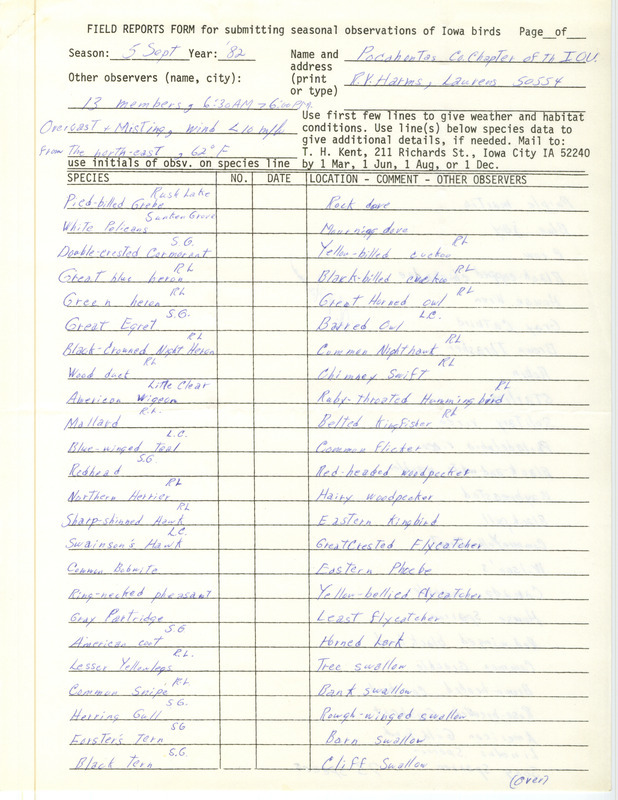 FIELD REPORTS FORM for submitting seasonal observations of Iowa birds Page__of___
Season: 5 Sept Year: '82 Name and Pocahontas Co. Chapter of the I.O.U.
address
Other observers (name, city): (print R.V. Harms, Laurens 50554
or type)
13 members, 6:30AM → 6:00PM.
Overcast + Misting, wind <10 m/h
From The north-east, 62°F
use initials of obsv. on species line
Use first few lines to give weather and habitat
conditions. Use line(s) below species data to
give additional details, if needed. Mail to:
T. H. Kent, 211 Richards St., Iowa City IA 52240
by 1 Mar, 1 Jun, 1 Aug, or 1 Dec.
SPECIES NO. DATE LOCATION - COMMENT - OTHER OBSERVERS
Rush Lake
Pied-billed Grebe Rock dove
Sunken Grove
White Pelicans Mourning dove
S.G. RL
Double-crested Cormorant Yellow-billed cuckoo
RL RL
Great blue heron Black-billed cuckoo
RL RL
Green heron Great Horned owl
S.G. L.C.
Great Egret Barred Owl
RL RL
Black-Crowned Night Heron Common Nighthawk
RL RL
Wood duck Chimney Swift
Little Clear RL
American Wigeon Ruby-throated Hummingbird
R.L. RL
Mallard Belted Kingfisher
L.C.
Blue-winged Teal Common Flicker
S.G.
Redhead Red-headed woodpecker
RL
Northern Herrier Hairy woodpecker
RL
Sharp-shinned Hawk Eastern Kingbird
L.C.
Swainson's Hawk Great Crested Flycatcher
Common Bobwite Eastern Phoebe
Ring-necked pheasant Yellow-bellied flycatcher
Gray Partridge Least flycatcher
S.G
American coot Horned Lark
R.L.
Lesser Yellowlegs Tree swallow
RL
Common Snipe Bank swallow
S.G.
Herring Gull Rough-winged swallow
SG
Forster's Tern Barn Swallow
S.G.
Black tern Cliff Swallow
(over)